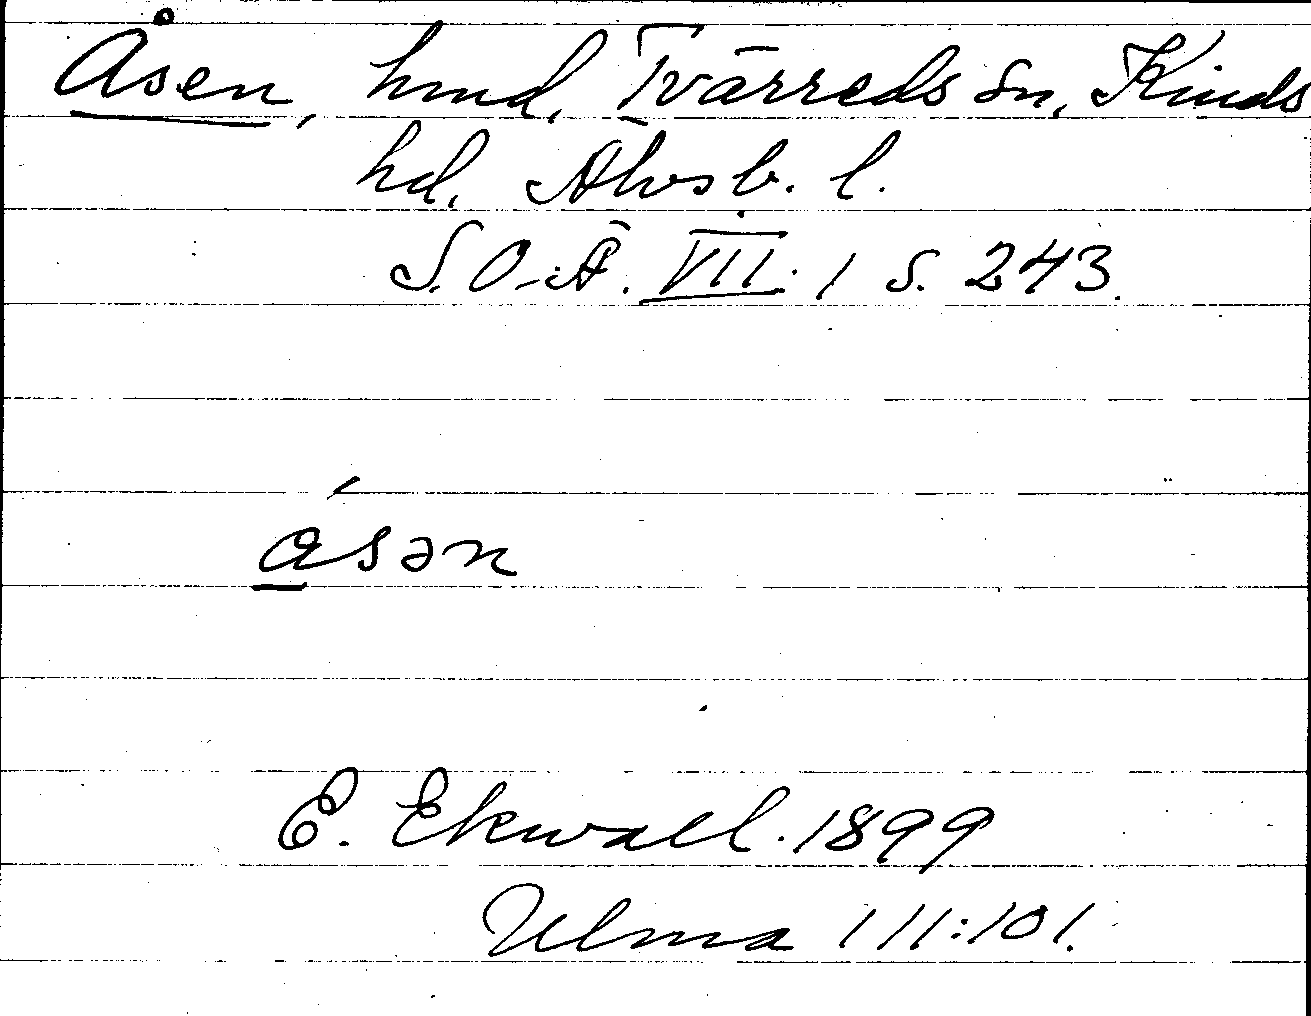 Åsen, hmd, Tvärreds sn, Kinds
hd. Älvsb. l.
S.O.Ä. VII. 1 S. 243.
a̲´sən
E. Ekwall. 1899
Ulma 111:101.